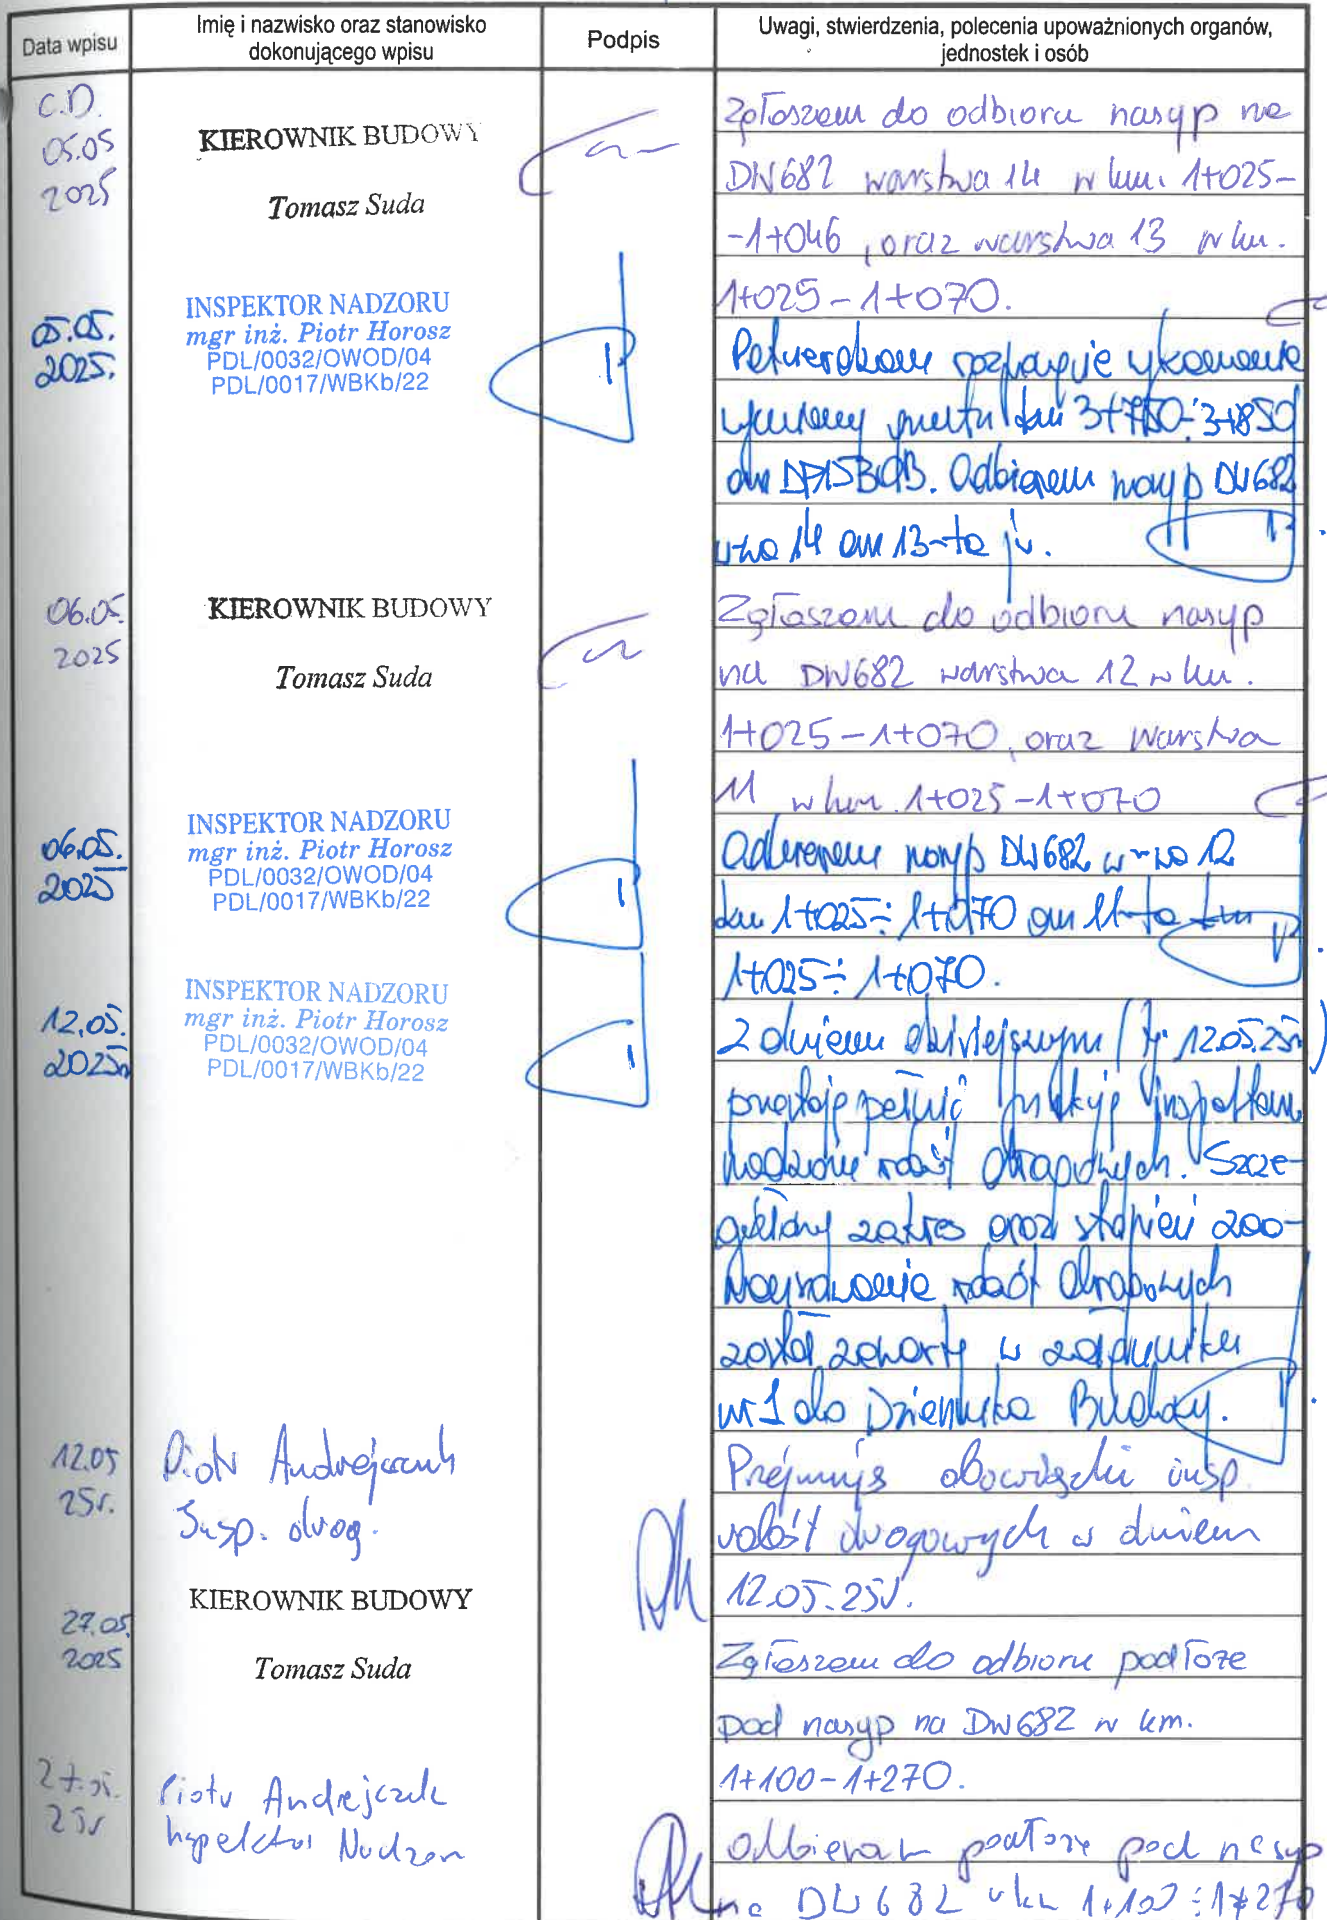 Data wpisu
Imię i nazwisko oraz stanowisko
dokonującego wpisu
Podpis
Uwagi, stwierdzenia, polecenia upoważnionych organów,
jednostek i osób
C.D.
05.05
2025
KIEROWNIK BUDOWY
Tomasz Suda
Zgłaszam do odbioru nasyp na
DW682 warstwa 14 w km. 1+025-
-1+046, oraz warstwa 13 w km.
1+025-1+070.
05.05.
2025.
INSPEKTOR NADZORU
mgr inż. Piotr Horosz
PDL/0032/OWOD/04
PDL/0017/WBKb/22
3+750÷3+850
Odbieram nasyp DW682
14 13-ta
06.05
2025
KIEROWNIK BUDOWY
Tomasz Suda
Zgłaszam do odbioru nasyp
na DW682 warstwa 12 w km.
1+025-1+070, oraz warstwa
11 w km. 1+025-1+070
06.05.
2025
INSPEKTOR NADZORU
mgr inż. Piotr Horosz
PDL/0032/OWOD/04
PDL/0017/WBKb/22
Odbieram nasyp DW682 w-wa 12
km 1+025÷1+070 11-ta km
1+025÷1+070.
12.05.
2025r
INSPEKTOR NADZORU
mgr inż. Piotr Horosz
PDL/0032/OWOD/04
PDL/0017/WBKb/22
Z dniem dzisiejszym (tj. 12.05.25r)
przestaję pełnić funkcję inspektora
nadzoru robót drogowych. Szcze-
gółowy zakres oraz stopień zaa-
wansowania robót drogowych
został zawarty w załączniku
nr 1 do Dziennika Budowy.
12.05
25r.
Piotr Andrejczuk
Insp. drog.
Przejmuję obowiązki insp.
robót drogowych z dniem
12.05.25r.
27.05
2025
KIEROWNIK BUDOWY
Tomasz Suda
Zgłaszam do odbioru podłoże
pod nasyp na DW682 w km.
1+100-1+270.
27.05.
25r
Piotr Andrejczuk
Inspektor Nadzoru
Odbieram podłoże pod nasyp
na DW682 w km 1+100÷1+270